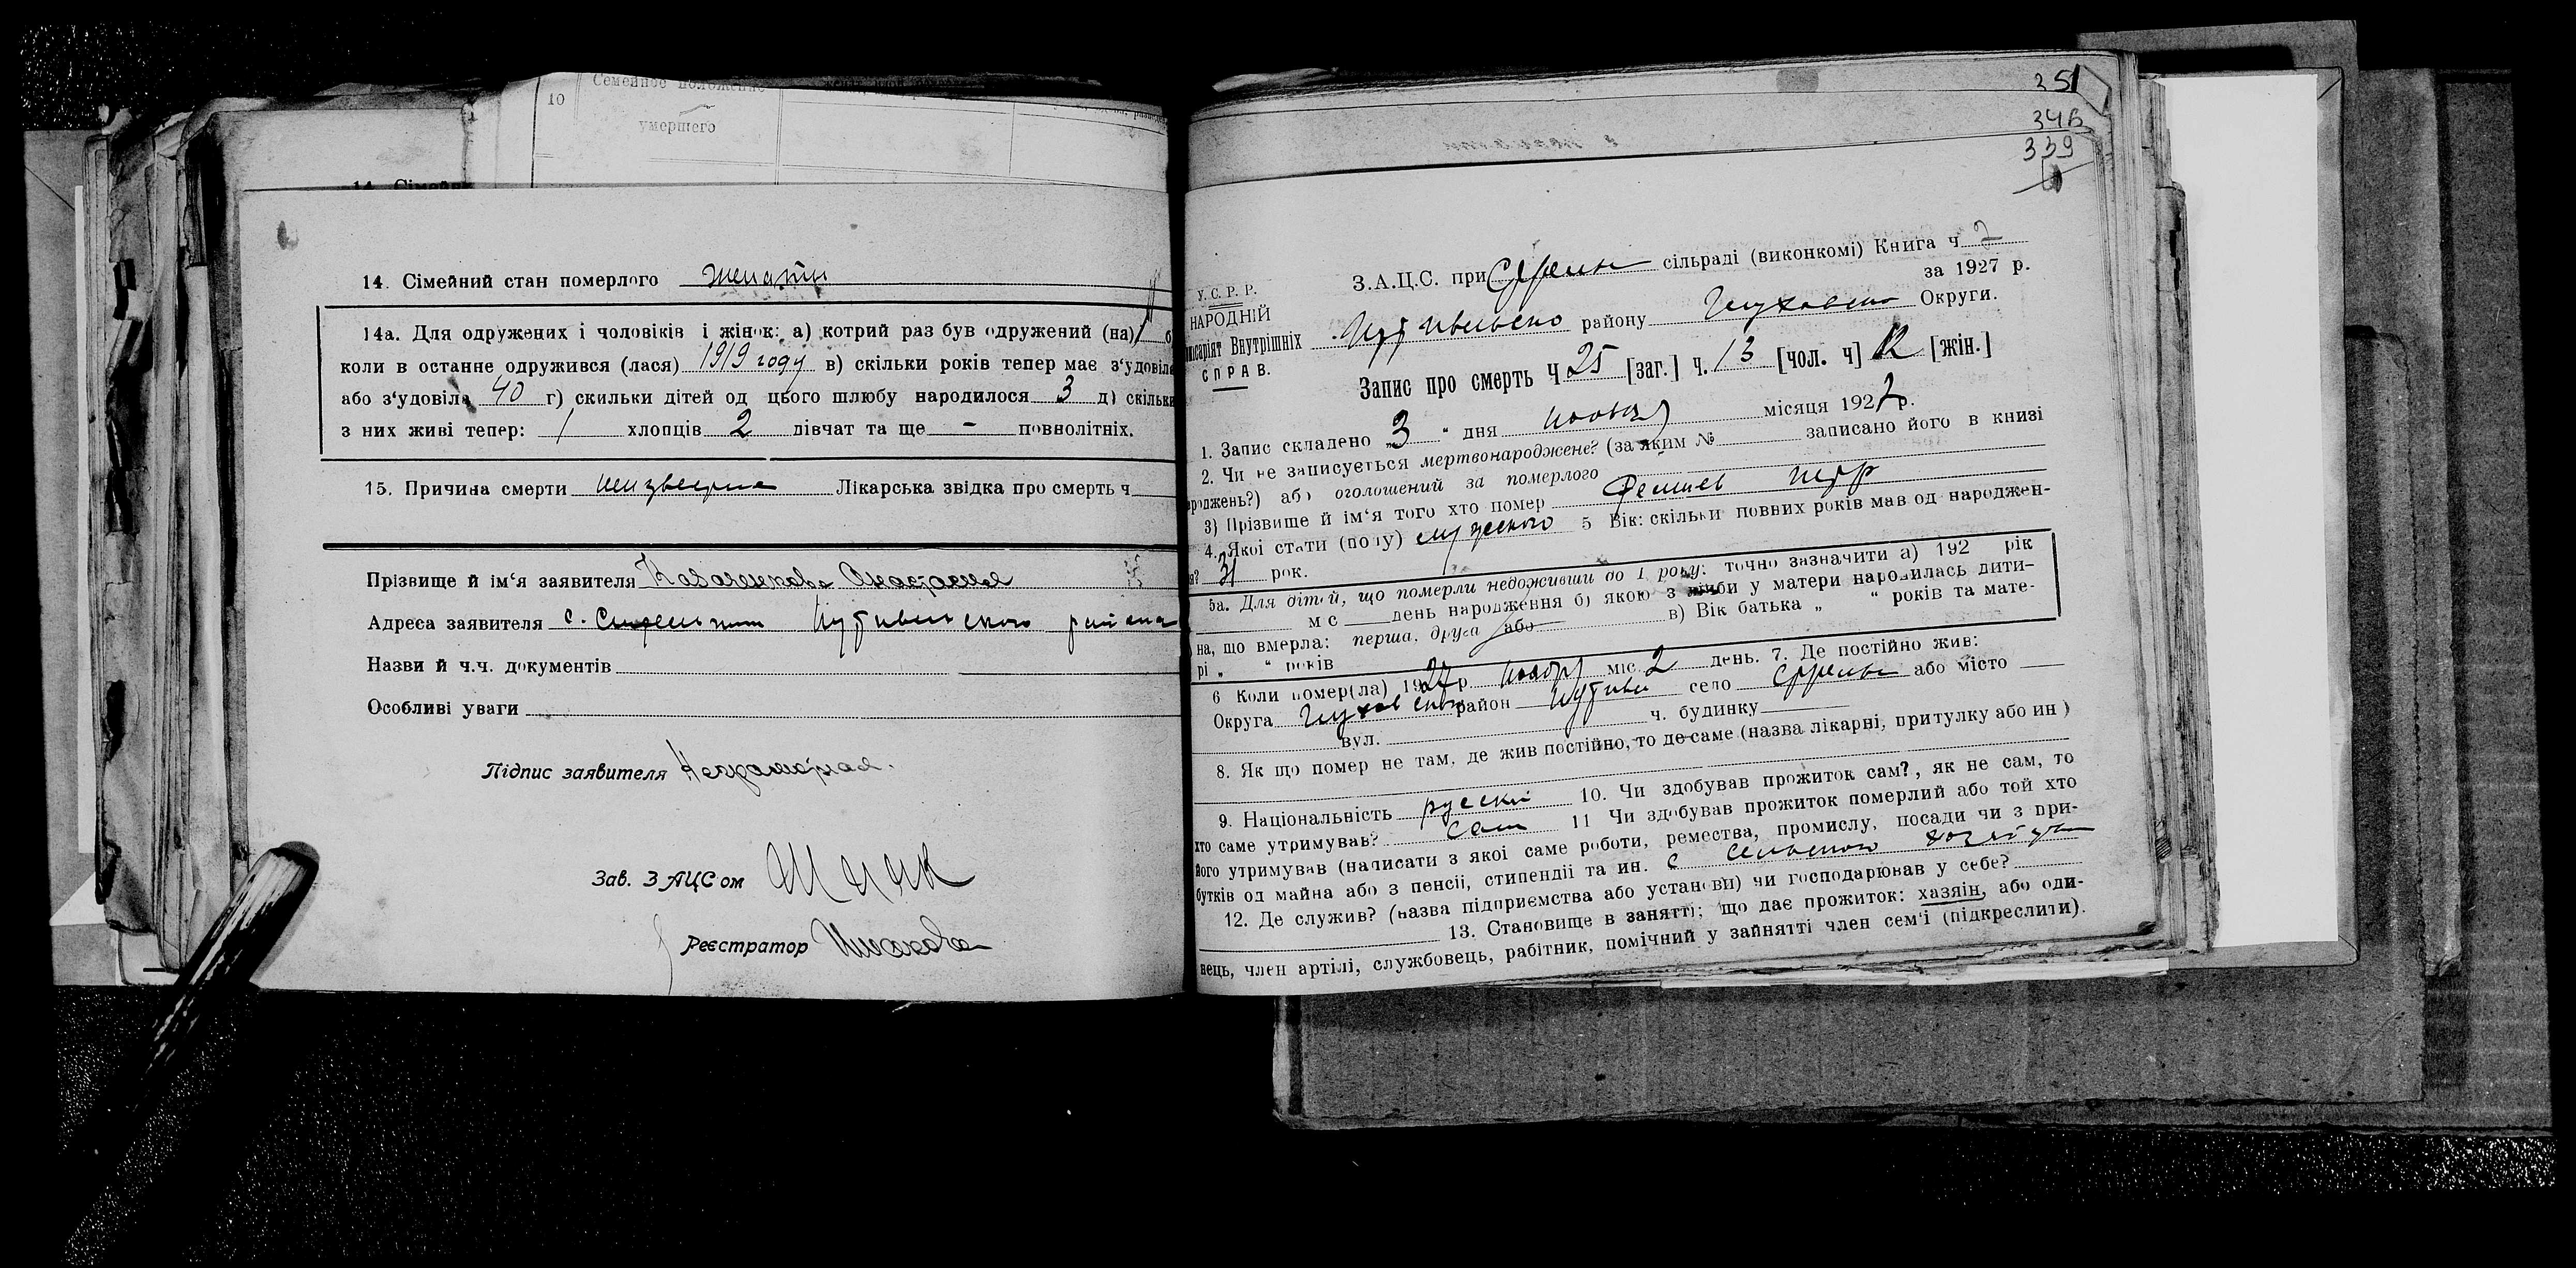 10
Семейное положение
умершего
14. Сімейн
14. Сімейний стан померлого женатый
14а. Для одружених і чоловіків і жінок: а) котрий раз був одружений (на) 1 б)
коли в останне одружився (лася) 1919 году в) скільки років тепер має з‘удовіле
або з‘удовіла 40 г) скильки дітей од цього шлюбу народилося 3 д) скільки
з них живі тепер: 1 хлопців 2 дівчат та ще - повнолітніх.
15. Причина смерти Лікарська звідка про смерть ч
Прізвище й ім‘я заявителя Анастасия
Адреса заявителя с. Путивльского района
Назви й ч.ч. документів
Особливі уваги
Підпис заявителя Неграмотная.
Зав. ЗАЦС‘ом
Реєстратор
251
339
У. С. Р. Р.
НАРОДНІЙ
Внутрішніх
СПРАВ.
З.А.Ц.С. при сільраді (виконкомі) Книга ч 2
за 1927 р.
Путивльско району Глуховско Округи.
Запис про смерть Ч 25 [заг.] ч. 13 [чол. ч] 12 [жін.]
1. Запис складено „3“ дня ноября місяця 1927 р.
2. Чи не записується мертвонароджене? (за яким № записано його в книзі
народжень?) або оголошений за померлого
3) Прізвище й ім‘я того хто помер Петр
4. Якої стати (полу) мужского 5 Вік: скільки повних років мав од народжен-
ня? 31 рок.
5а. Для дітей, що померли недоживши до 1 року: точно зазначити а) 192 рік
м с день народження б) якою з у матери народилась дити-
на, що вмерла: перша, друга або в) Вік батька „ “ років та мате-
рі „ “ років
6 Коли помер(ла) 1927 р. ноября міс. 2 день. 7. Де постійно жив:
Округа Глуховско район Путивл село або місто
вул. ч. будинку
8. Як що помер не там, де жив постійно, то де саме (назва лікарні, притулку або ин)
9. Національність русский 10. Чи здобував прожиток сам?, як не сам, то
хто саме утримував? сам 11 Чи здобував прожиток померлий або той хто
його утримував (написати з якої саме роботи, ремества, промислу, посади чи з при-
бутків од майна або з пенсії, стипендії та ин. с сельского
12. Де служив? (назва підприємства або установи) чи господарював у себе?
13. Становище в занятті; що дає прожиток: хазяін, або оди-
нець, член артілі, службовець, рабітник, помічний у зайнятті член сем‘ї (підкреслити).